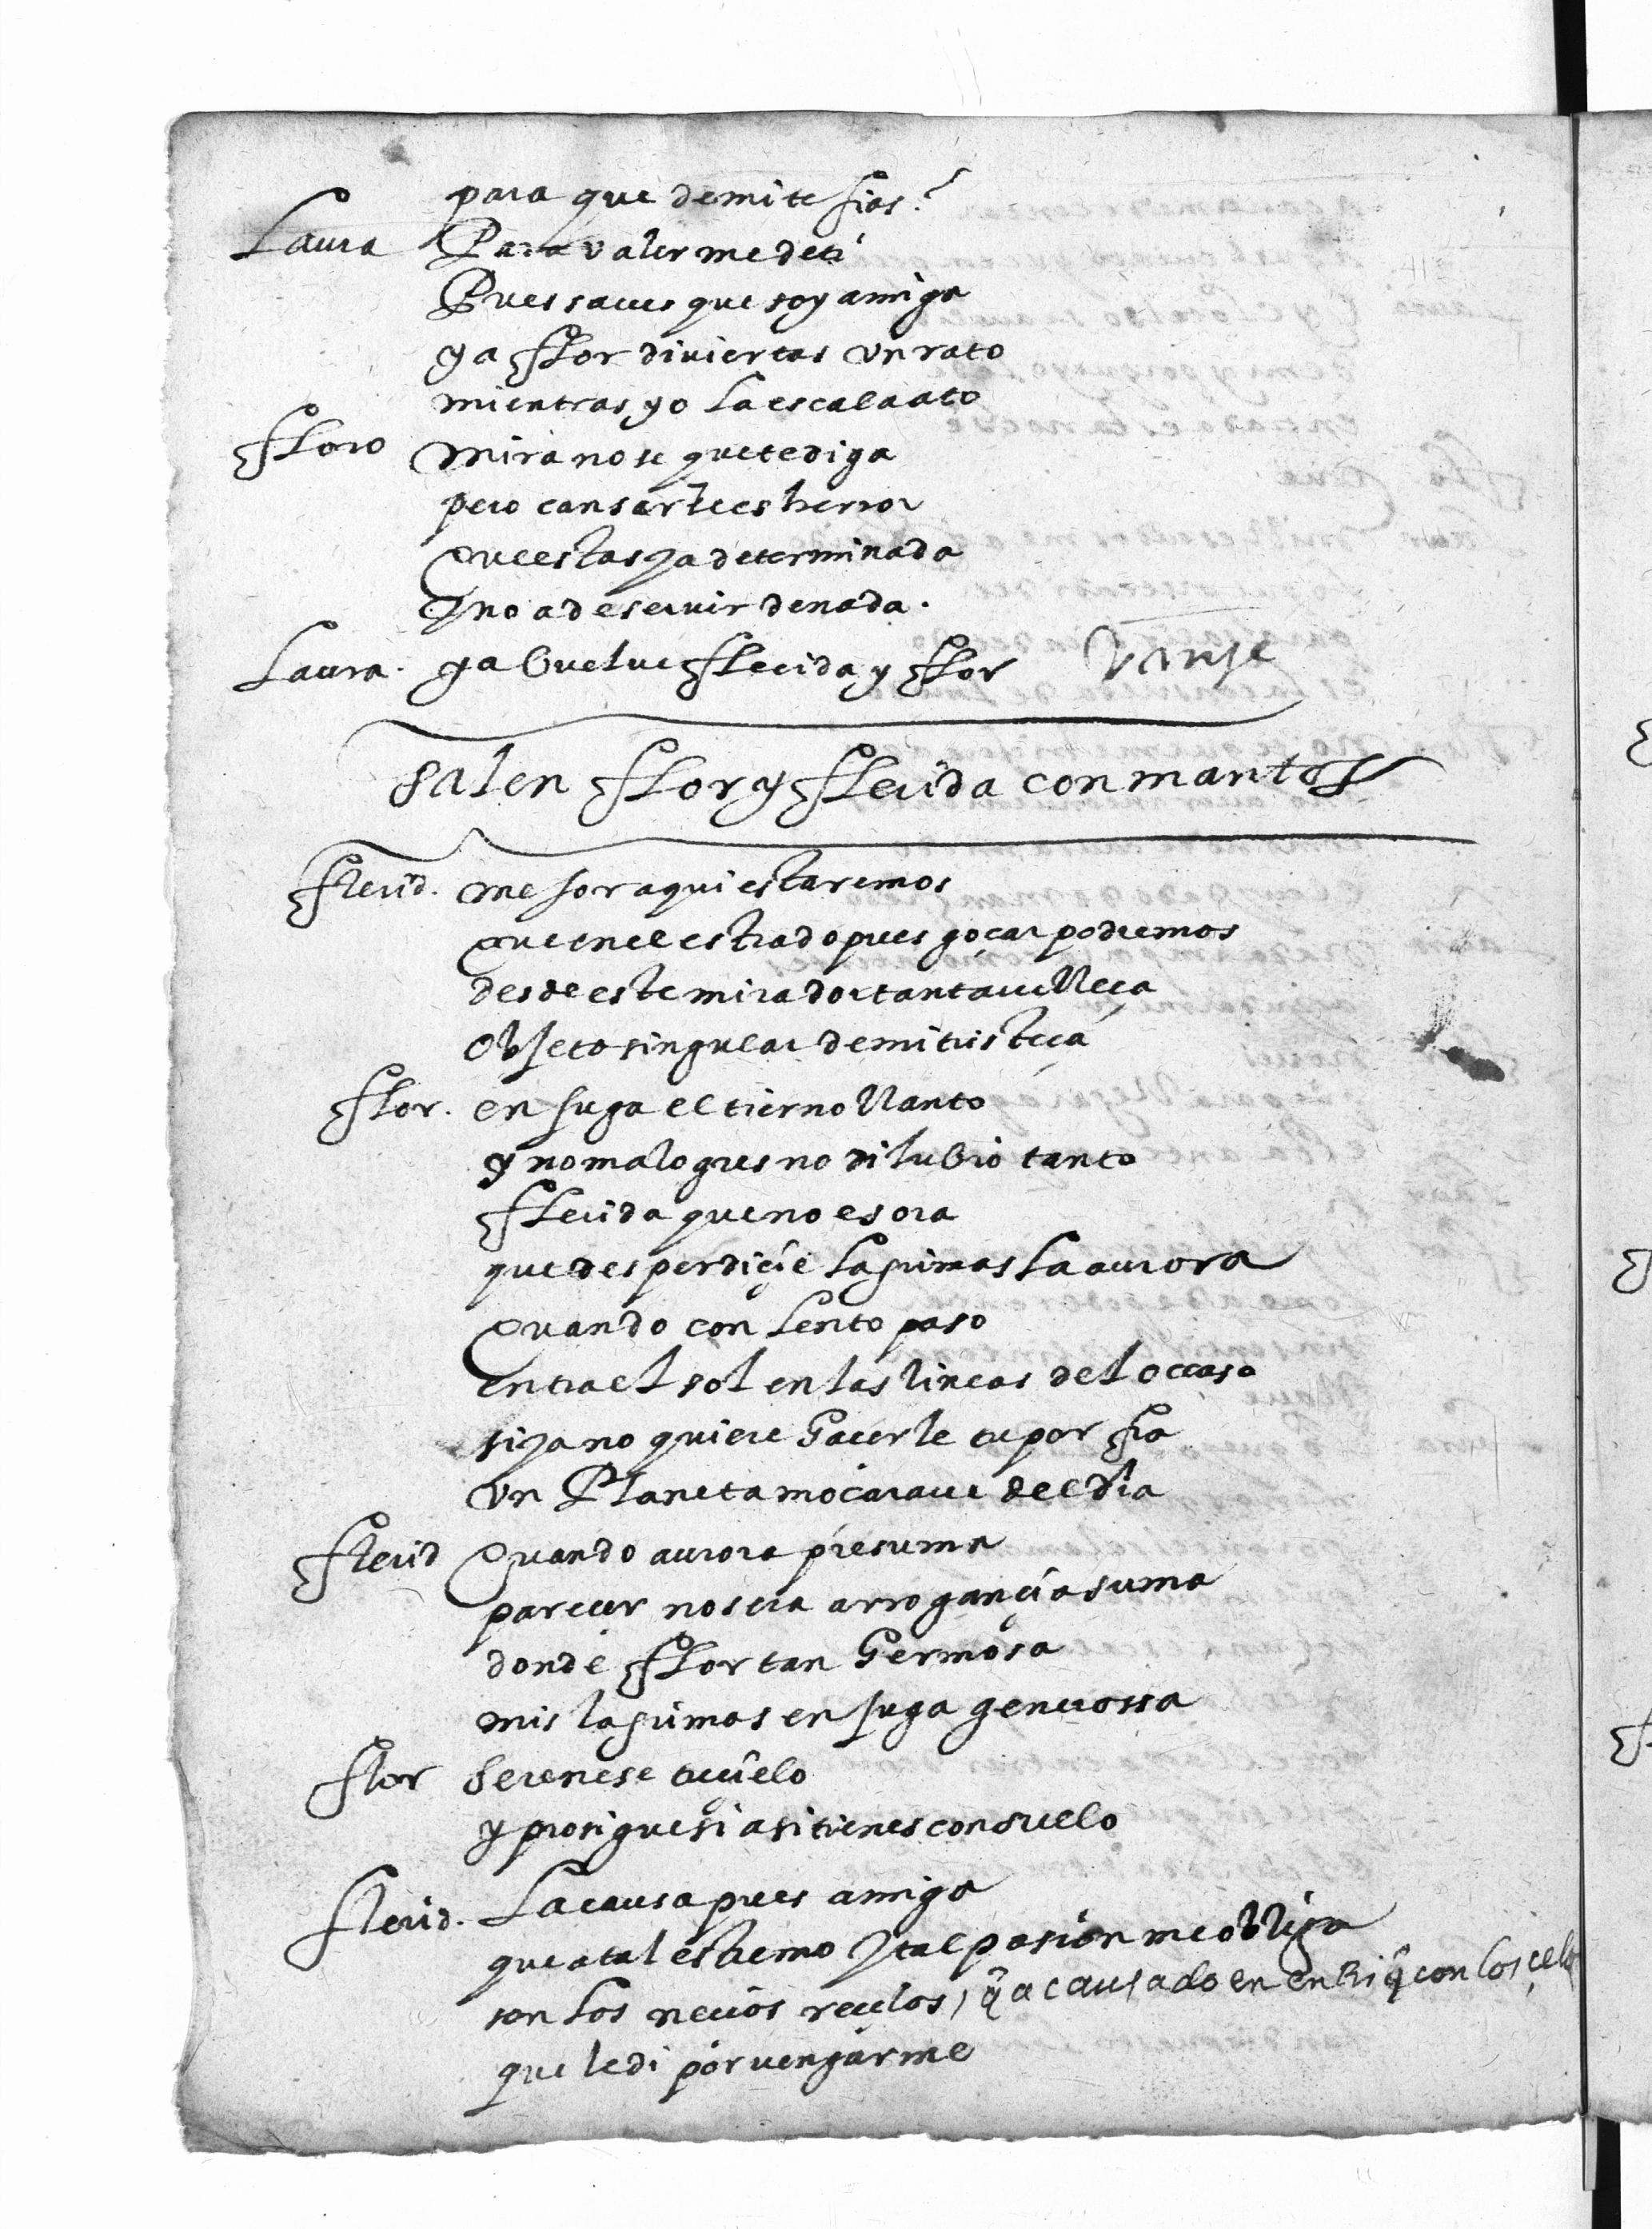 para que de mi te fias?
Laura Para valerme de ti
Pues saues que soy amiga
y a fflor diuiertas vn rato
mientras yo la escala ato
ffloro mira no se que te diga
pero cansarte es herror
Que estas ya determinada
y no a de seruir de nada.
Laura. ya buelue fflerida y fflor Vanse
Salen fflor y fflerida con mantos
fflerid. mejor aqui estaremos
que en el estrado pues goçar podremos
desde este mirador tanta uelleça
objeto singular de mi tristeça
fflor. enjuga el tierno llanto
y no malogres no dilubio tanto
fflerida que no es ora
que desperdiçie lagrimas la aurora
Quando con lento paso
entra el sol en las lineas del occaso
si ya no quiere hacerle tu porfia
vn Planeta moçaraue del dia
fflerid Quando aurora presuma
parecer no sera arrogançia suma
donde fflor tan hermosa
mis lagrimas enjuga generossa
fflor Serenese tu çielo
y prosigue si asi tienes consuelo
fflerid. La causa pues amiga
que a tal estremo y tal pasion me obliga
son los necios recelos, q̃ a causado en enRiq̃ con los çelos
que le di por uengarme